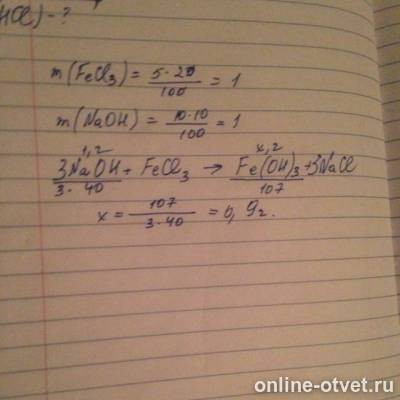 HCl) - ?
m(FeCl3) = 5·20/100 = 1
m(NaOH) = 10·10/100 = 1
1,2 x,2
3NaOH + FeCl3 → Fe(OH)3 + 3NaCl
3·40 107
x = 107/3·40 = 0,9 г.
online-otvet.ru